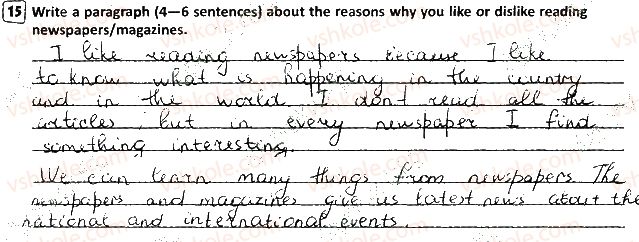 15 Write a paragraph (4—6 sentences) about the reasons why you like or dislike reading
newspapers/magazines.
I like reading newspapers because I like
to know what is happening in the country
and in the world. I don't read all the
articles, but in every newspaper I find
something interesting.
We can learn many things from newspapers. The
newspapers and magazines give us latest news about the
national and international events.